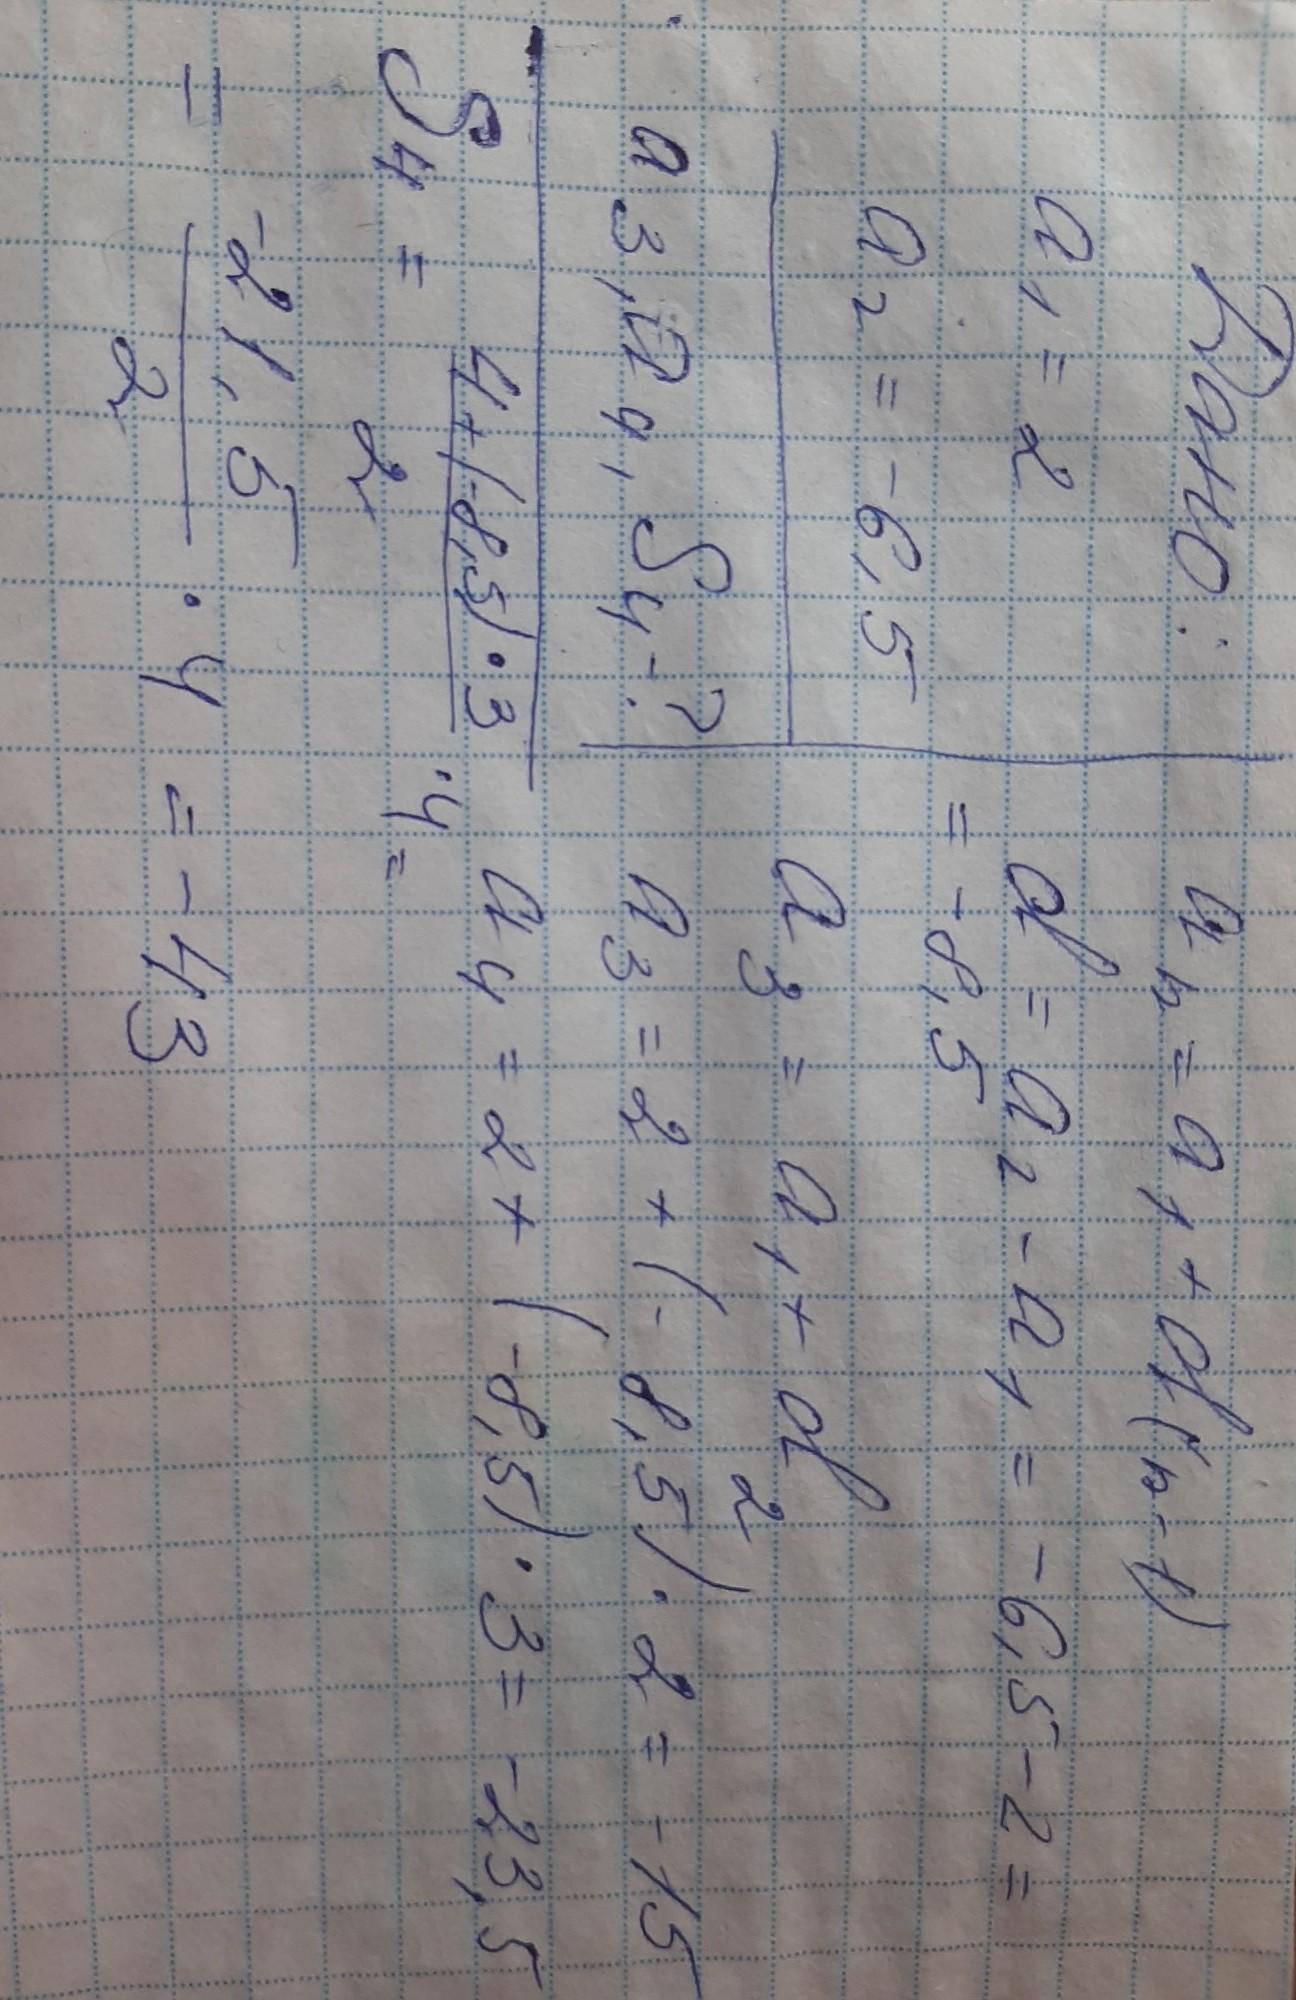 Дано:
a₁ = 2
a₂ = -6,5
a₃, a₄, S₄ - ?
aₙ = a₁ + d(n-1)
d = a₂ - a₁ = -6,5 - 2 =
= -8,5
a₃ = a₁ + d₂
a₃ = 2 + (-8,5) · 2 = -15
a₄ = 2 + (-8,5) · 3 = -23,5
S₄ = 4+(-8,5) · 3 / 2 · 4 =
= -21,5 / 2 · 4 = -43